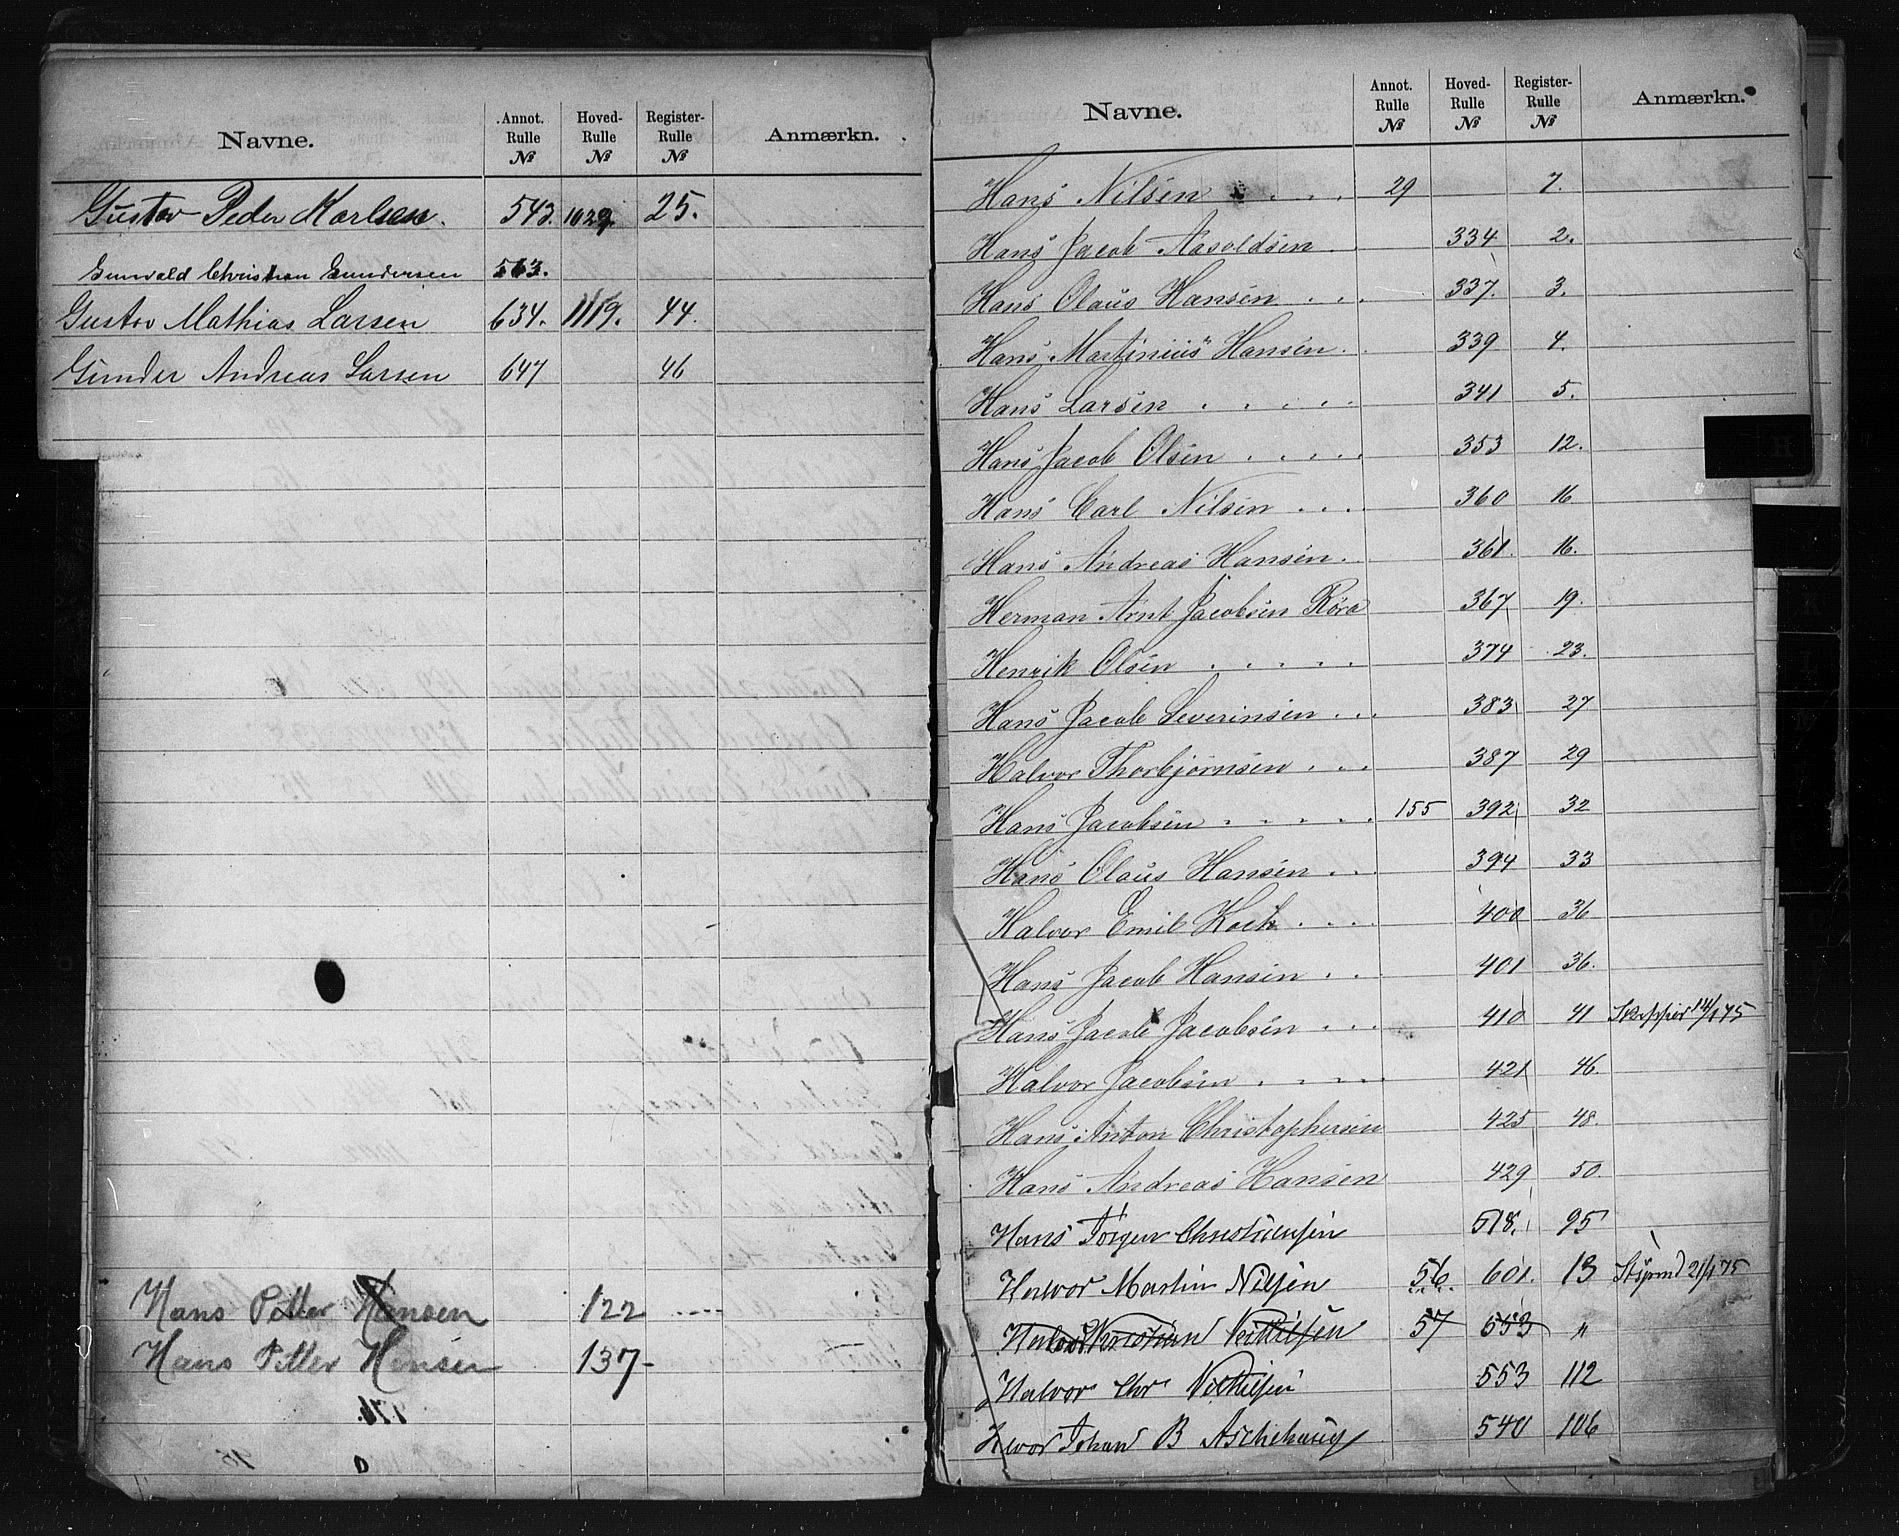 Navne. Annot. Rulle № Hoved- Rulle № Register- Rulle № Anmærkn.
Gustav Peder Karlsen. 543. 1029. 25.
Gunvald Christian Gundersen 563.
Gustav Mathias Larsen 634. 1119. 44.
Gunder Andreas Larsen 647 46
Hans Petter Hansen 122
Hans Petter Hansen 137
Navne. Annot. Rulle № Hoved- Rulle № Register- Rulle № Anmærkn.
Hans Nilsen . . . . 29 7.
Hans Jacob Aasoldsen . 334 2.
Hans Olaus Hansen . . . 337. 3.
Hans Martinius Hansen . . 339 4.
Hans Larsen . . . . . 341 5.
Hans Jacob Olsen . . . . . 353 12.
Hans Carl Nilsen . . . . 360 16
Hans Andreas Hansen . . 361. 16.
Herman Arnt Jacobsen Röra 367 19.
Henrik Olsen . . . . . 374 23.
Hans Jacob Severinsen . . . 383 27
Halvor Thorbjørnsen . . . 387 29
Hans Jacobsen . . . . . 155 392 32
Hans Olaus Hansen . . . 394 33
Halvor Emil Koch . . . . 400 36
Hans Jacob Hansen . . . 401 36.
Hans Jacob Jacobsen . . . 410 41 Skipper 14/1 75
Halvor Jacobsen . . . . 421 46.
Hans Anton Christophersen 425 48.
Hans Andreas Hansen 429 50.
Hans Jörgen Christiansen 518. 95
Halvor Martin Nilsen 56 601. 13 Styrmd 21/1 75
Halvor Christian 57 553 "
Halvor Chr 553 112
Johan B Aschehoug 540 106